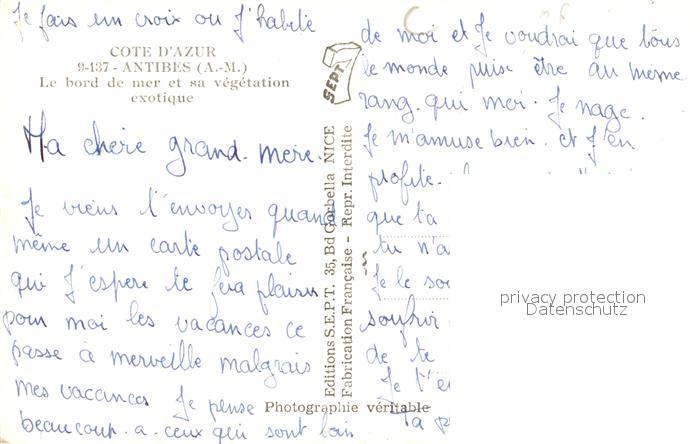 Je fais un croix ou J'habite
COTE D'AZUR
9-137 - ANTIBES (A.-M.)
Le bord de mer et sa végétation
exotique
Ma chère grand-mère.
Je viens t'envoyer quand
même un carte postale
qui J'espere te fera plaisir
pour moi les vacances ce
passe à merveille malgrais
mes vacances Je pense
beaucoup a ceux qui sont loin
SEPT
Editions S.E.P.T. 35, Bd Gorbella NICE
Fabrication Française - Repr. Interdite
Photographie véritable
de moi et Je voudrai que tous
le monde puise être au meme
rang qui moi. Je nage.
Je m'amuse bien et J'en
profite.
que ta
tu n'a
Je le
soufrir
de te
Je t'e
Ta
privacy protection
Datenschutz